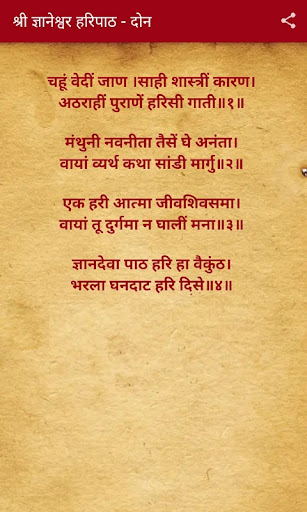 श्री ज्ञानेश्वर हरिपाठ - दोन
चहूं वेदीं जाण ।साही शास्त्रीं कारण।
अठराहीं पुराणें हरिसी गाती॥१॥
मंथुनी नवनीता तैसें घे अनंता।
वायां व्यर्थ कथा सांडी मार्गु॥२॥
एक हरी आत्मा जीवशिवसमा।
वायां तू दुर्गमा न घालीं मना॥३॥
ज्ञानदेवा पाठ हरि हा वैकुंठ।
भरला घनदाट हरि दिसे॥४॥